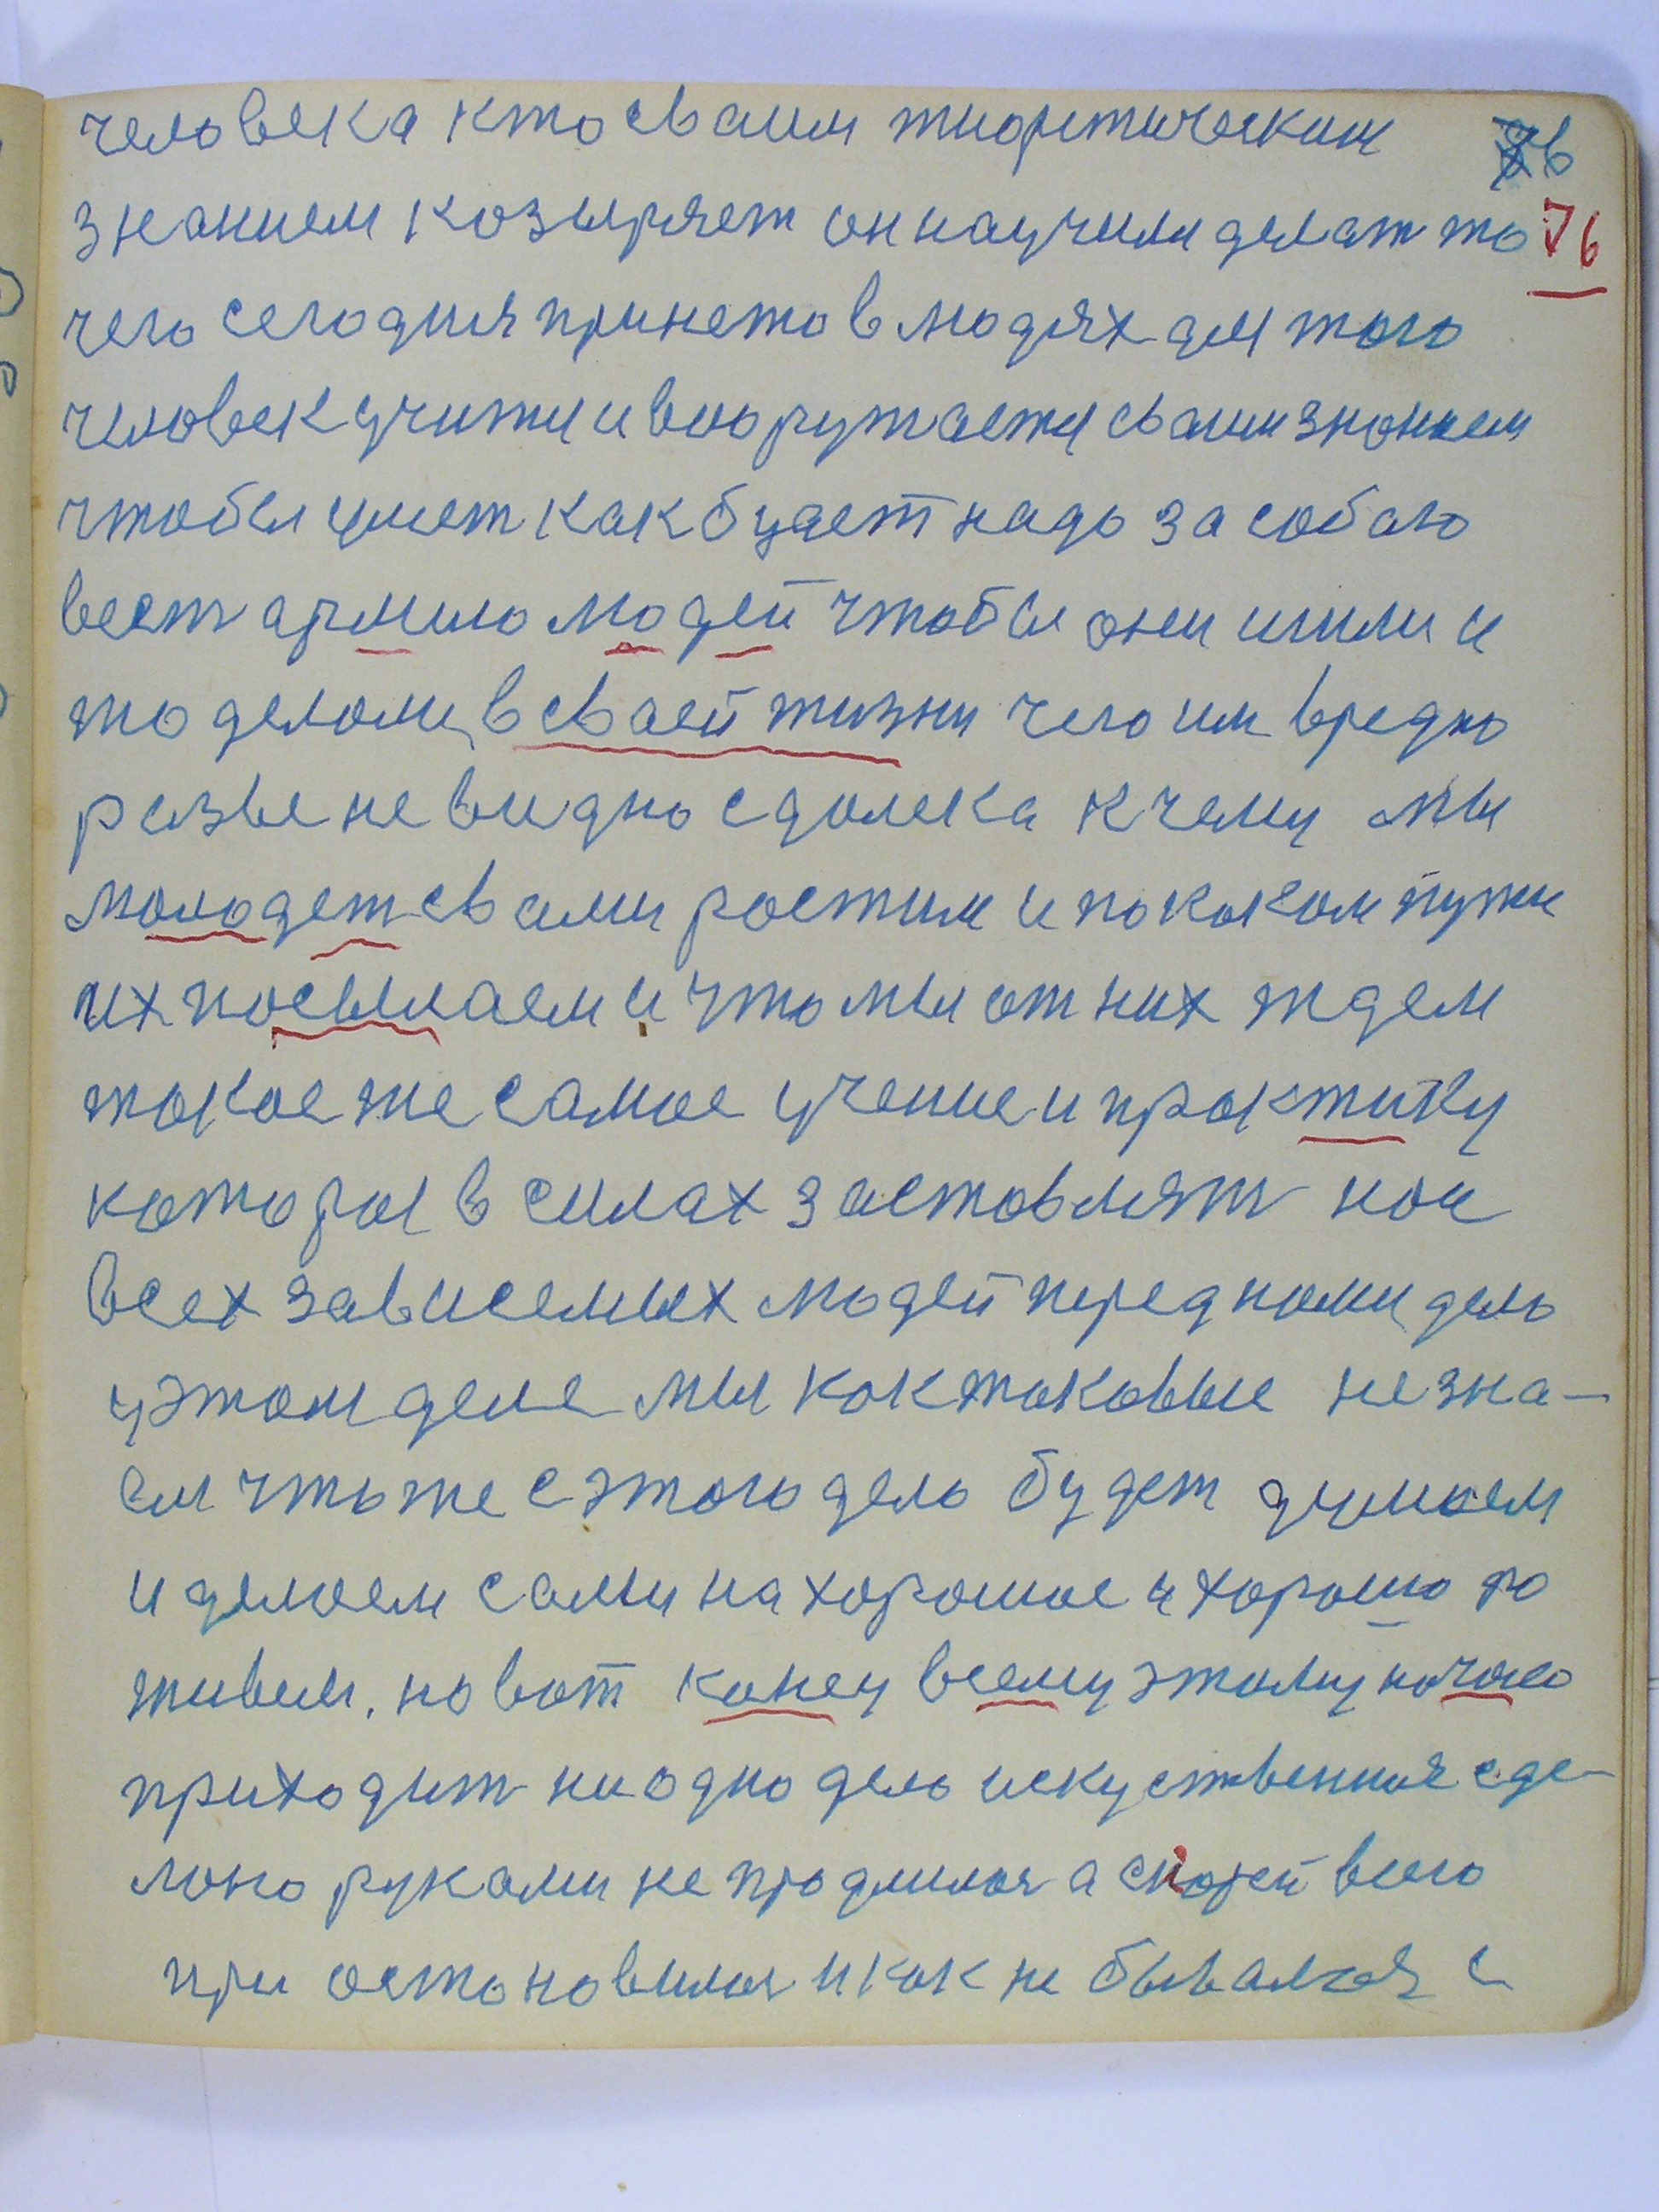 человека кто сваим тиоретическим
76
знанием козыряет он научили делат то
76
чего сегодня принето в людях для того
человек учитця и вооружаетця сваим знанием
чтобы умет как будет надо за собаю
вест армию людей чтобы они шли и
то делали в сваей жизни чего им вредно
разве не видно сдалека к чему мы
молодеж сваими ростим и по каком пути
их посылаем и что мы от них ждем
такое же самое учение и практику
которая в силах заставлят нас
всех зависемых людей перед нами дело
у этом деле мы как таковые не зна-
ем что же с этого дело будет думаем
и делаем сами на хорошое а хорошо то
живем. но вот конец всему этому начало
приходит ни одно дело искуственная сде-
лано руками не продлилая а скорей всего
при остановилая и как не бывалая с